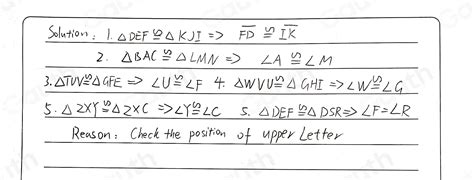 Solution: 1. △DEF ≌ △KJI => F̅D̅ ≌ I̅K̅
2. △BAC ≌ △LMN => ∠A ≌ ∠M
3. △TUV≌△GFE => ∠U≌∠F 4. △WVU≌△GHI =>∠W≌∠G
5. △ZXY≌△ZXC =>∠Y≌∠C 5. △DEF≌△DSR=> ∠F=∠R
Reason: Check the position of upper Letter